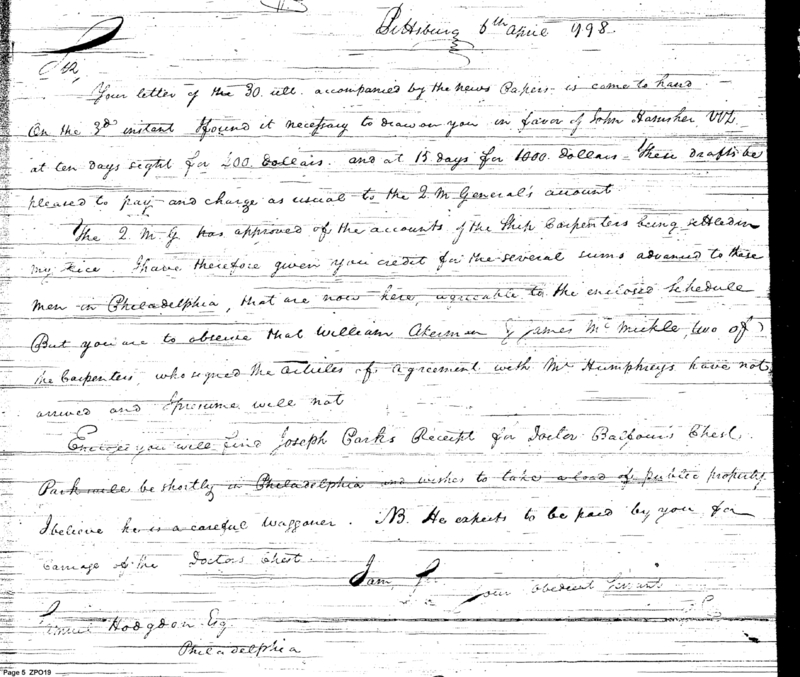 Pittsburg 6th April 1798.
Sir,
Your letter of the 30. ult. accompanied by the news Papers is come to hand
On the 3d instant I found it necessary to draw on you in favor of John Hamsher VVZ
at ten days sight for 200 dollars. and at 15 days for 1000 dollars – These drafts be
pleased to pay – and charge as usual to the Q M General's account
The Q. M. G has approved of the accounts of the Ship Carpenters being settled in
my . I have therefore given you credit for the several sums advanced to these
men in Philadelphia, that are now here, agreeable to the enclosed Schedule
But you are to observe that William Akerman & James McMickle, two of
the Carpenters, who signed the articles of agreement with Mr Humphreys have not
arrived and I presume will not
Enclosed you will find Joseph Parks Receipt for Doctor Balfour's Chest.
Park will be shortly in Philadelphia and wishes to take a load of public property
I believe he is a careful waggoner. NB. He expects to be paid by you for
Carriage of the Doctors Chest.
I am, Sir
your obedient Servant
Hodgdon Esq
Philadelphia
Page 5 ZPO19